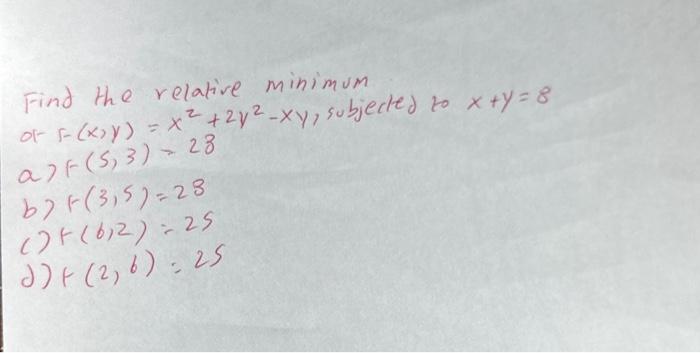 Find the relative minimum
of F(x,y) = x² + 2y² - xy, subjected to x + y = 8
a) F(5,3) = 28
b) F(3,5) = 28
c) F(6,2) = 25
d) F(2,6) = 25